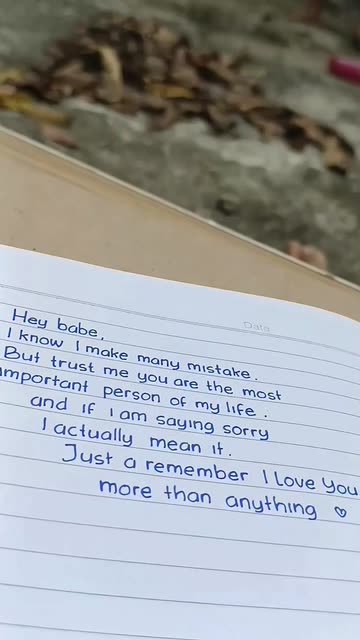 Date
Hey babe,
I know I make many mistake.
But trust me you are the most
important person of my life.
and if I am saying sorry
I actually mean it.
Just a remember I Love You
more than anything ♡